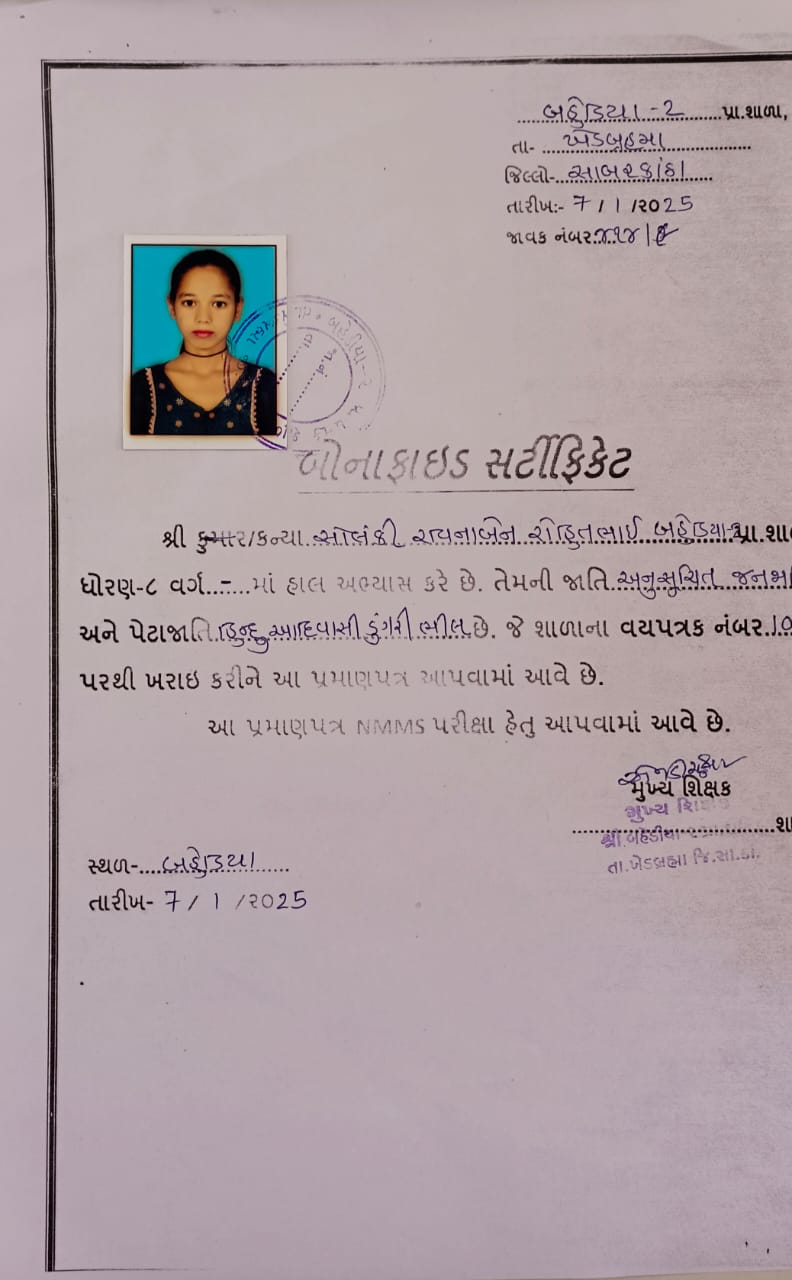 બહેડિયા-2 પ્રા.શાળા,
તા- ખેડબ્રહ્મા
જિલ્લો- સાબરકાંઠા
તારીખ:- 7/1/૨૦25
જાવક નંબર
બોનાફાઇડ સર્ટીફિકેટ
શ્રી કુમાર/કન્યા સોલંકી રોહિતભાઈ બહેડિયા-2 પ્રા.શા
ધોરણ-૮ વર્ગ - માં હાલ અભ્યાસ કરે છે. તેમની જાતિ અનુસુચિત જનજા
અને પેટાજાતિ હિન્દુ આદિવાસી ડુંગરી ભીલ છે. જે શાળાના વયપત્રક નંબર
પરથી ખરાઇ કરીને આ પ્રમાણપત્ર આપવામાં આવે છે.
આ પ્રમાણપત્ર NMMS પરીક્ષા હેતુ આપવામાં આવે છે.
મુખ્ય શિક્ષક
મુખ્ય શિ
શ્રી બહેડીયા
શા
તા.ખેડબ્રહ્મા જિ.સા.કાં.
સ્થળ- બહેડિયા
તારીખ- 7/1/૨૦25